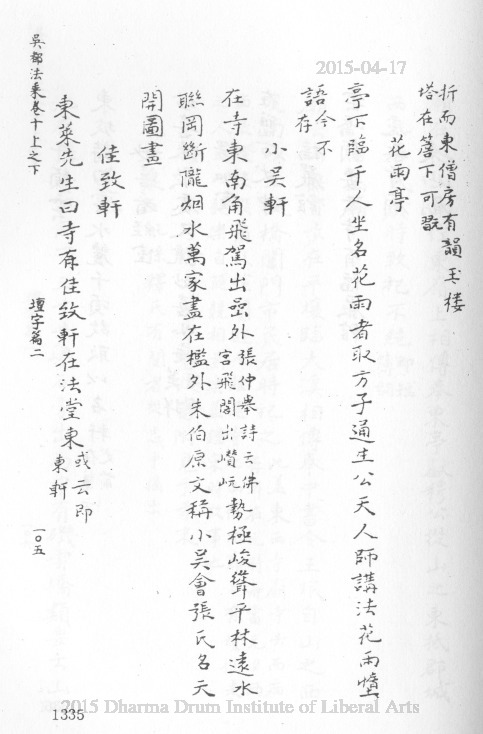 2015-04-17
折而東僧房有韻玉楼
塔在簷下可翫
花雨亭
亭下臨千人坐名花雨者取方子通生公天人師講法花雨墮
語今不
存
小吴軒
在寺東南角飛駕出嵒外張仲舉詩云佛
宮飛閣出巑岏勢極峻聳平林遠水
聯岡斷隴烟水萬家盡在檻外朱伯原文稱小吴會張氏名天
開圖畫
佳致軒
東萊先生曰寺有佳致軒在法堂東或云即
東軒
吴都法乘卷十上之下
壇字篇二
一〇五
1335
2015 Dharma Drum Institute of Liberal Arts